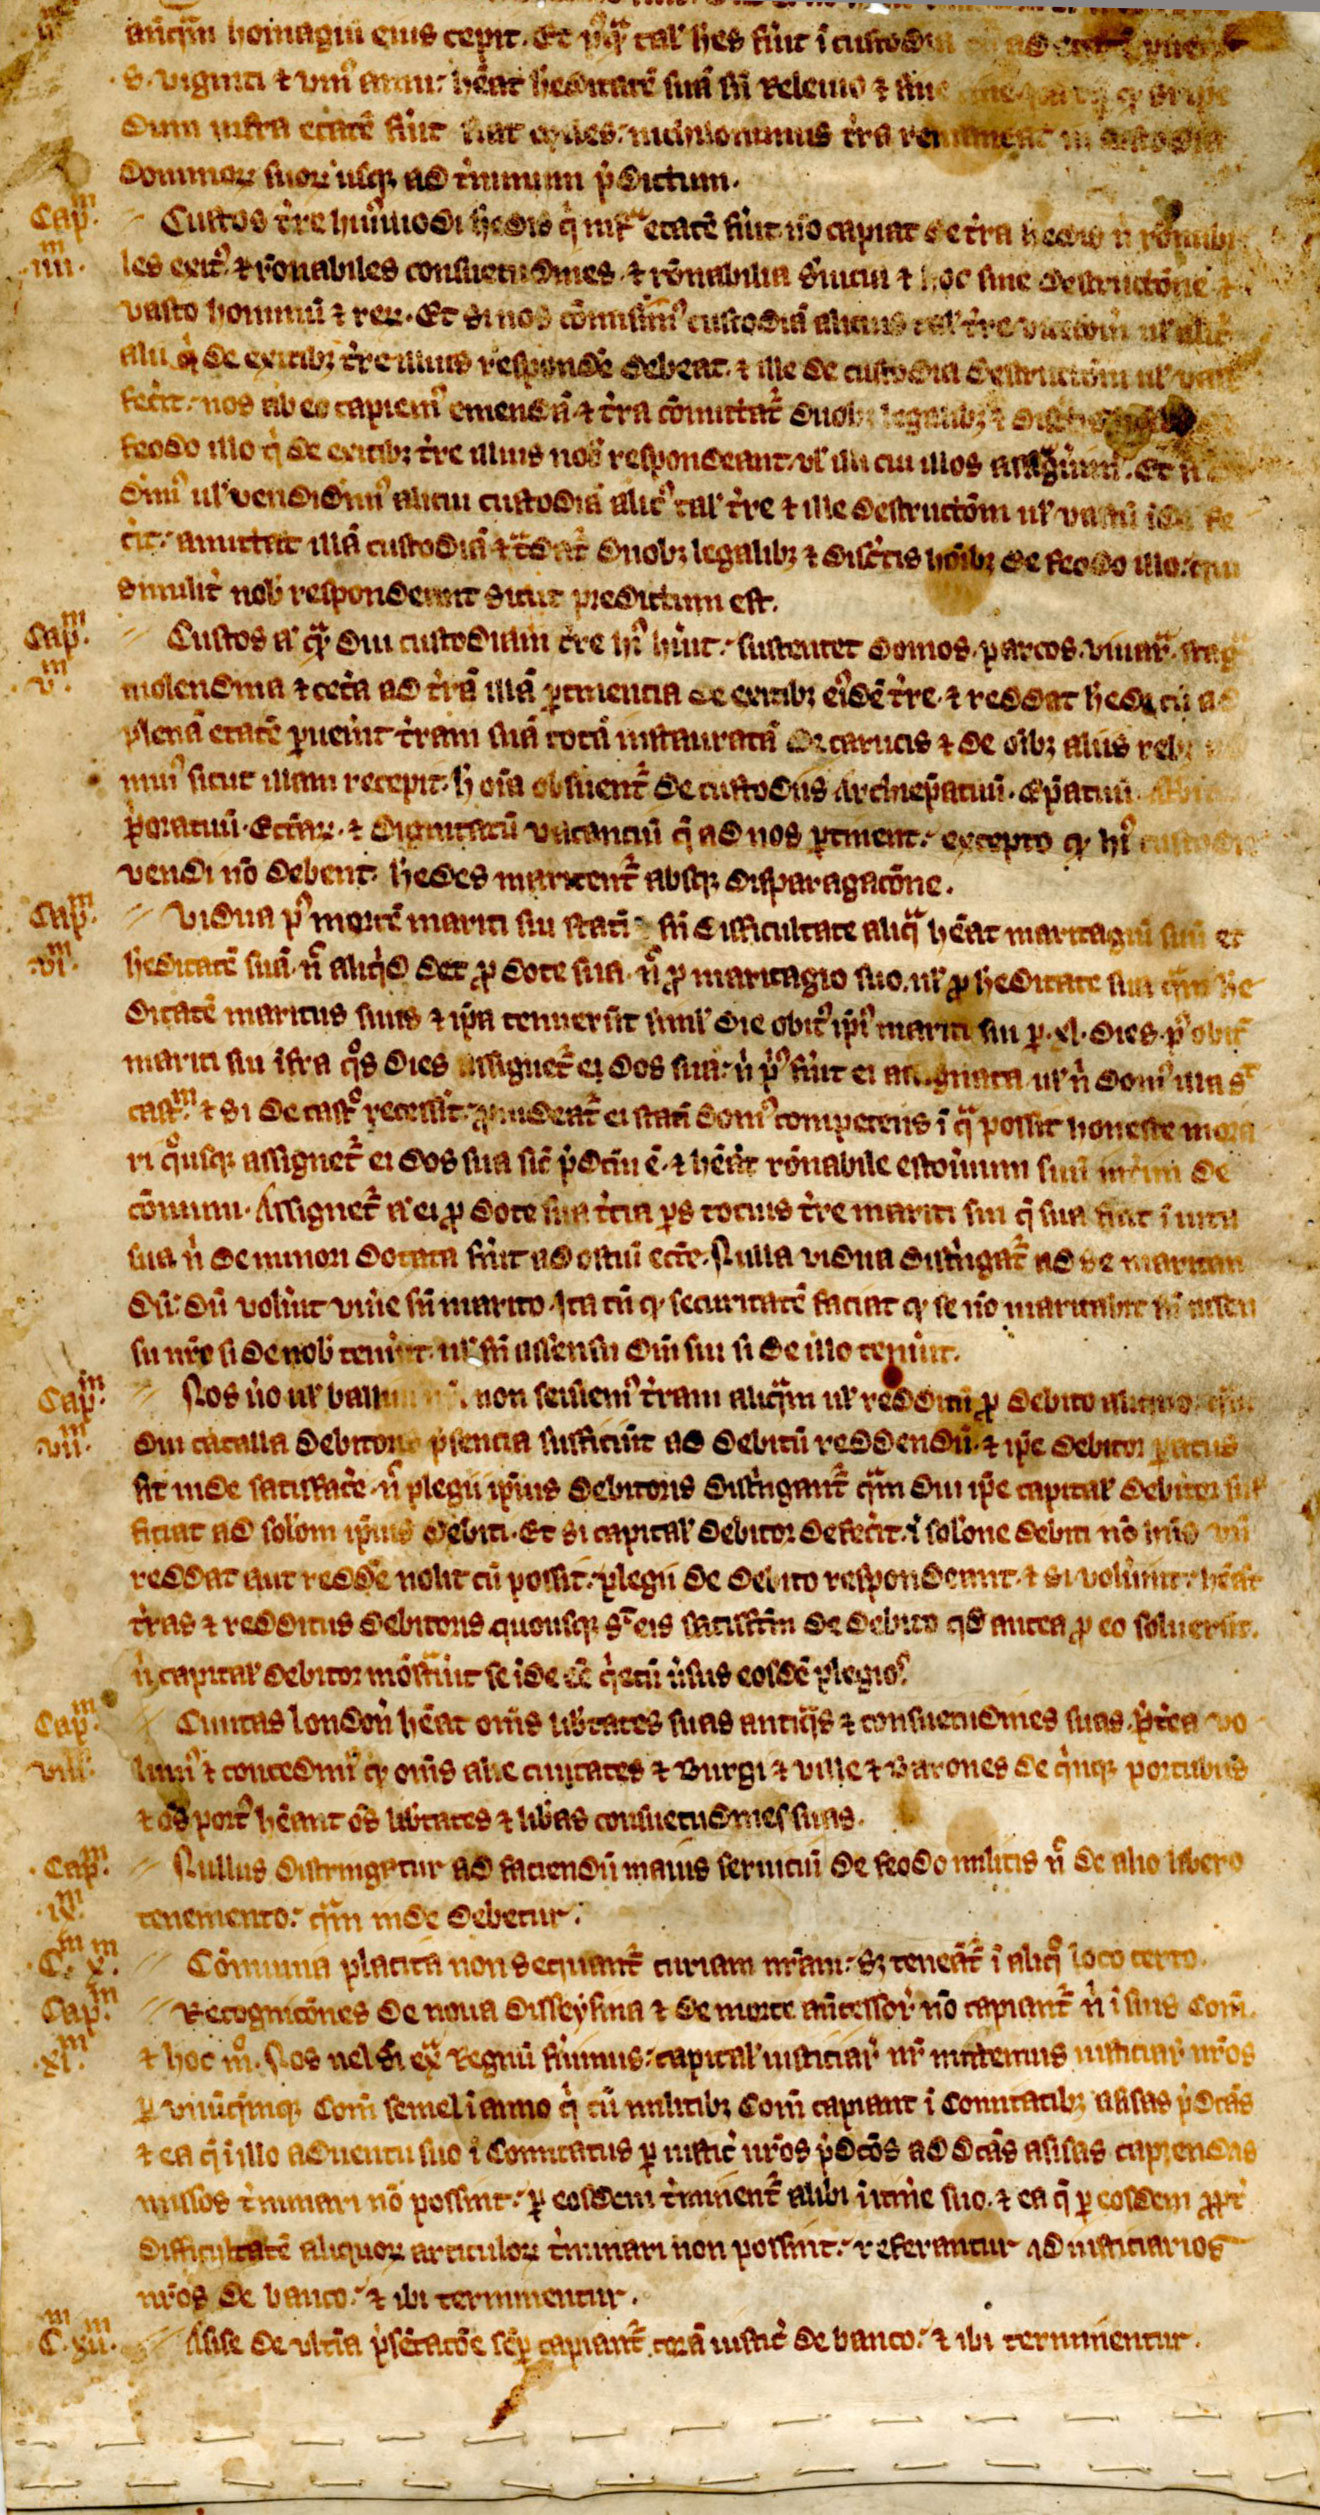 anteq̄m homagiū eius cepit. Et
s. viginti ⁊ vni᷒ anni: hēat h̓editatē suā sn̄ Relevio ⁊ sine
dum infra etatē fu̓it nichilominus t̓ra remaneat in custodia
dominoꝝ suoꝝ usqꝫ ad t̓minum p̓dictum.
Capm Custos t̓re hui᷒modi h̓edis q̓ infra etatē fu̓it nō capiat de t̓ra h̓edis n̓ rōnabi
.iiii.m les exit᷒ ⁊ rōnabiles consuetudines ⁊ rōnabilia s̓uicia ⁊ hoc sine destructōne ⁊
vasto hominū ⁊ reꝝ. Et si nos cōmisim᷒ custodiā alicuius tal̓ t̓re vicecom̄ ul̓ alic̓
alii q̓ de exitibꝫ t̓re illius responde̓ debeat. ⁊ ille de custodia destructōm ul̓ vastū
fec̓it: nos ab eo capiem᷒ emendā ⁊ t̓ra cōmittat̓ duobꝫ legalibꝫ ⁊
feodo illo q̓ de exitibꝫ t̓re illius nob̓ respondeant. ul̓ illi cui illos assig̓um̄. Et
dim᷒ ul̓ vendidim᷒ alicui custodiā alic᷒ tal̓ t̓re ⁊ ille destructōm ul̓ vastū īde fe
cit: amittat illā custodiā ⁊ t̓dat̓ duobꝫ legalibꝫ ⁊ disc̓tis hōibꝫ de feodo illo: qui
similit̓ nob̓ respondeant sicut predictum est.
Capm Custos a̓ q̄mdiu custodiam t̓re h᷒i hu̓it: sustentet domos. parcos. vivar̓. stagna
.v.m molendina ⁊ cet̓a ad t̓rā illā ꝑtinencia de exitibꝫ ei᷒dē t̓re. ⁊ reddat h̓edi cū ad
plenā etatē ꝑuen̓it t̓ram suā totā instauratā de carucis ⁊ de oībꝫ aliis rebꝫ
min᷒ sicut illam recepit. h̓ oīa obs̓uent̓ de custodiis Archiep̄atuū. Ep̄atuū.
p̓oratuū. Ecc̄iaꝝ. ⁊ dignitatū vacanciū q̓ ad nos ꝑtinent: excepto qꝫ h᷒i custodie
vendi nō debent. h̓edes maritent̓ absqꝫ disparagacōne.
Capm Vidua p᷒ mortē mariti sui statī ⁊ sn̄ difficultate aliq̄ hēat maritagiū suū et
.vi.m h̓editatē suā. n̄ aliq̓d det ꝓ dote sua. n̄ ꝓ maritagio suo. ul̓ ꝓ h̓editate sua q̄m he
ditatē maritus suus ⁊ ip̄a tenuer̄t simul̓ die obit᷒ ip̄i᷒ mariti sui ꝑ .xl. dies. p᷒ obit̄
mariti sui īfra q̊s dies assignet̓ ei dos sua: n̓ p᷒ fu̓it ei assignata ul̓ n̓ dom᷒ illa s̓
castm̄. ⁊ si de cast̊ recesserit. ꝓuideat̓ ei statī dom᷒ competens ī q̄ possit honeste mora
ri q̊usqꝫ assignet̓ ei dos sua sic̄ p̓dc̄m ē. ⁊ hēat rōnabile estou̓ium suū int̓im de
cōmuni. Assignet̓ a̓ ei ꝓ dote sua t̓cia ꝑs tocius t̓re mariti sui q̓ sua fuit ī vita
sua n̓ de minori dotata fu̓it ad ostiū ecc̄e. Nulla vidua dist̓ngat̓ ad se maritan
dū: dū volu̓it viu̓e sn̄ marito. Ita tn̄ qꝫ securitatē faciat qꝫ se nō maritabit sn̄ assen
su nr̄o si de nob̓ tenu̓it. ul̓ sn̄ assensu dn̄i sui si de illo tenu̓it.
Capm Nos u̓o ul̓ ball non seisiem᷒ t̓ram aliq̄m ul̓ redditū ꝓ debito aliquo.
.vii.m diu catalla debitoris p̓sencia sufficiūt ad debitū reddendū. ⁊ ip̄e debitor paratus
sit inde satisfac̓e. n̄ plegii ip̄ius debitoris dist̓ngant̓ q̄mdiu ip̄e capital̓ debitor suf
ficiat ad soloīm ip̄ius debiti. Et si capital̓ debitor defec̓it. ī solōne debiti nō hn̄s vn̄
reddat aut redde̓ nolit cū possit: plegii de debito respondeant. ⁊ si volu̓int: hēāt
t̓ras ⁊ redditus debitoris quousqꝫ s̓ eis satisfc̄m de debito qd̓ antea ꝓ eo soluer̄t.
n̓ capital̓ debitor mōst̓u̓it se īde eē q̓etū u̓sus eosdē plegios.
Capm Ciuitas london̄ hēat om̄s lib̓tates suas antiq̄s ⁊ consuetudines suas. p̓t̓ea vo
viii. lum᷒ ⁊ concedim᷒ qꝫ om̄s alie ciuitates ⁊ Burgi ⁊ ville ⁊ Barones de q̓nqꝫ portubus
⁊ oēs port᷒ hēant oēs lib̓tates ⁊ lib̓as consuetudines suas.
.Capm Nullus distringatur ad faciendū maius seruiciū de feodo militis n̄ de alio libero
.ix.m tenemento: q̄m inde debetur.
.C.m x.m Cōmunia placita non sequant̓ curiam nr̄am: sꝫ teneāt̓ ī aliq̊ loco certo.
Capm Recognicōnes de noua disseysina ⁊ de morte an̄cessor̓ nō capiant̓ n̓ ī suis Com̄.
.xi.m ⁊ hoc m̊. Nos uel si ex̄ Regnū fu̓imus: capital̓ iusticiar̓ nr̄ mittemus iusticiar̓ nr̄os
ꝑ vnūq̄mqꝫ Com̄ semel ī anno q̓ cū militibꝫ Com̄ capiant ī Comitatibꝫ assisas p̓dc̄ās
⁊ ea q̓ ī illo aduentu suo ī Comitatus ꝑ iustic̓ nr̄os p̓dc̄ōs ad dc̄ās assisas capiendas
missos t̓minari nō possint: ꝑ eosdem t̓minent̓ alibi ī itin̓e suo. ⁊ ea q̓ ꝑ eosdem ꝓpt̓
difficultatē aliquoꝝ articuloꝝ t̓minari non possint: referantur ad iusticiarios
nr̄os de banco: ⁊ ibi terminentur.
C.m xii.m Assise de ultīa p̓sētacōe sēꝑ capiant̓ corā iustic̓ de banco: ⁊ ibi terminentur.